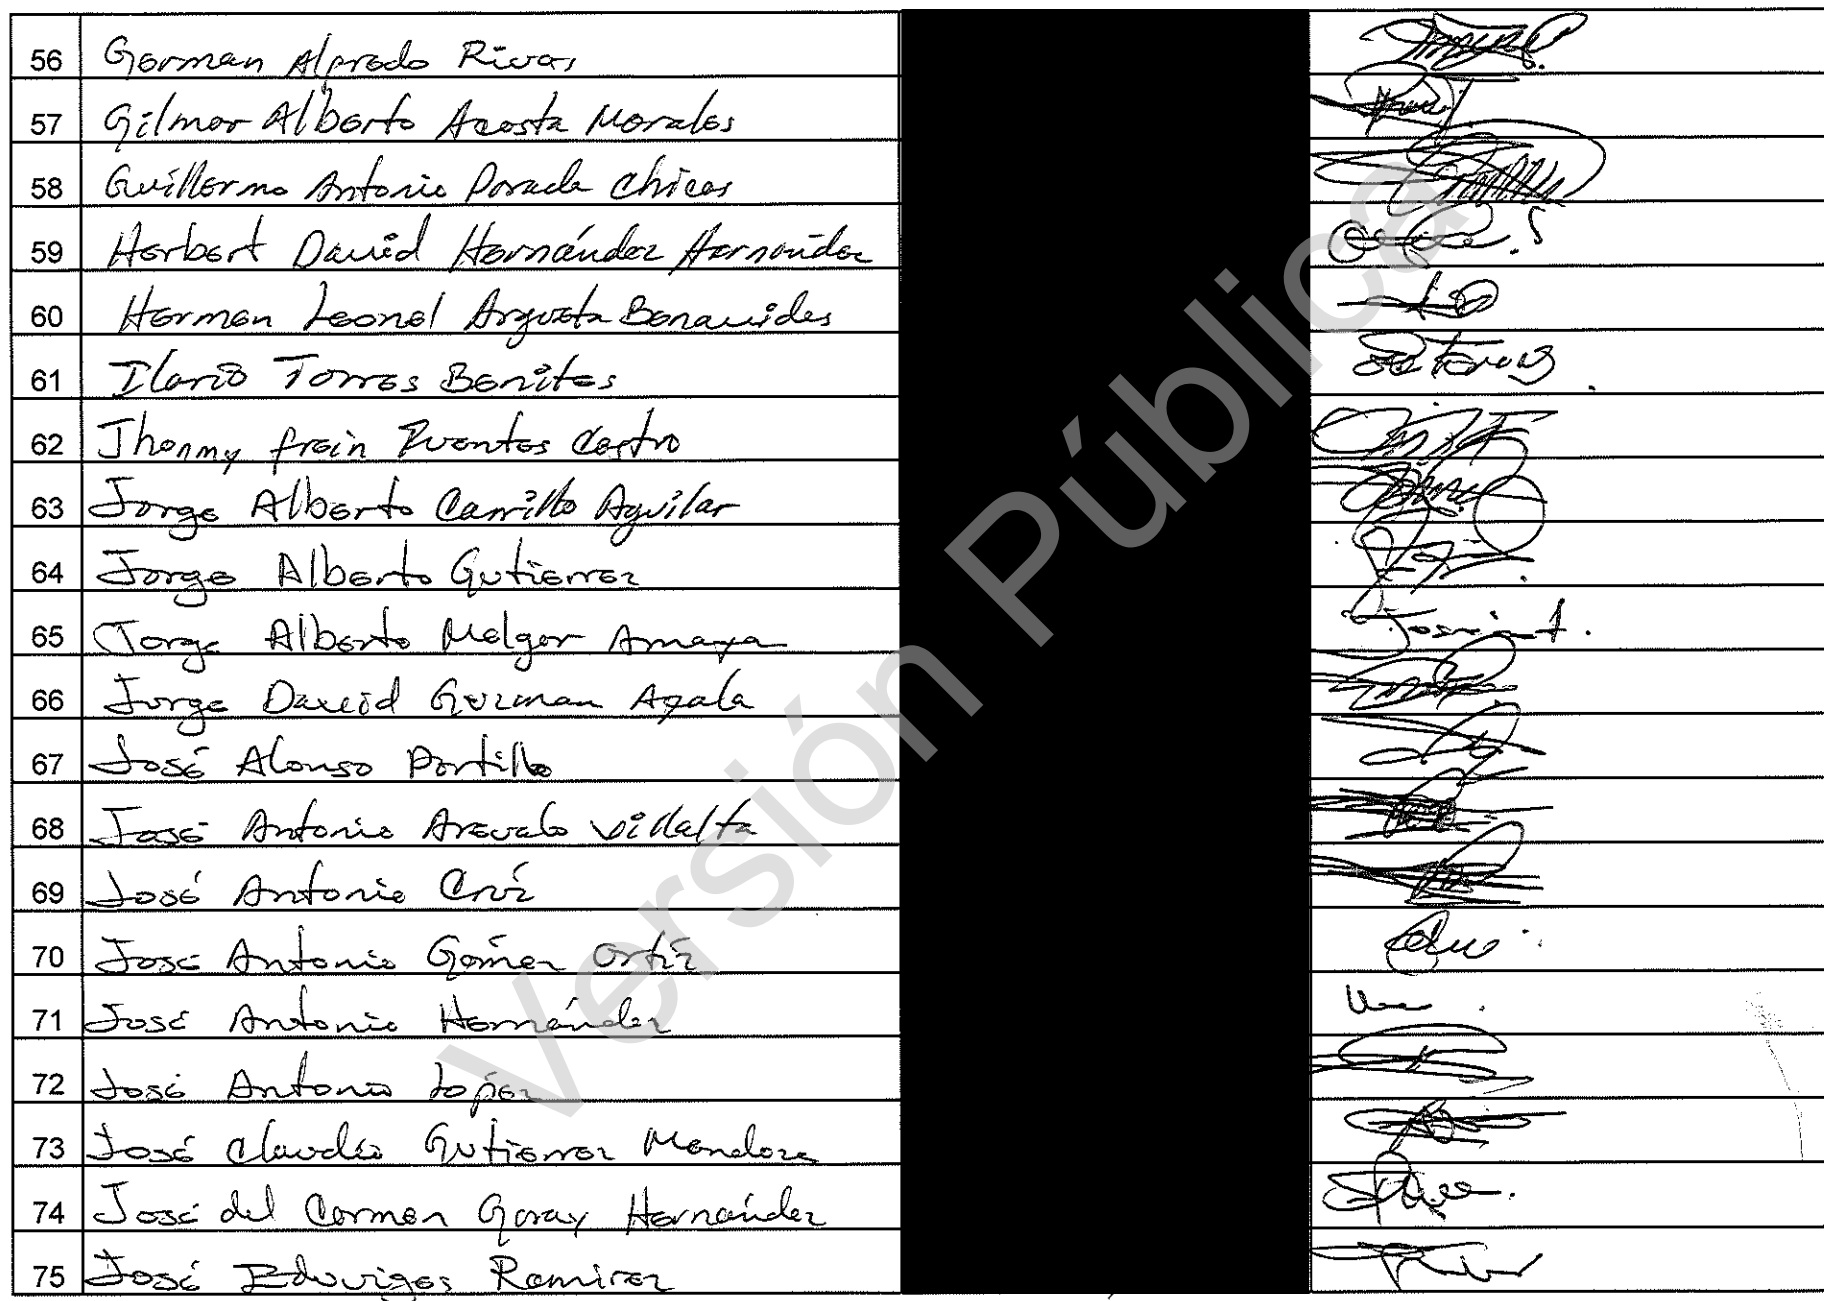 56 German Alfredo Rivas
57 Gilmer Alberto Acosta Morales
58 Guillermo Antonio Parada Chicas
59 Herbert David Hernández Hernández
60 Hermen Leonel Argueta Benavides
61 Ilario Torres Benites
62 Jhonny frein Fuentes Castro
63 Jorge Alberto Carrillo Aguilar
64 Jorge Alberto Gutierrez
65 Jorge Alberto Melgar Amaya
66 Jorge David Guzman Ayala
67 José Alonso Portillo
68 José Antonio Arevalo Villalta
69 José Antonio Crúz
70 José Antonio Gómez Ortíz
71 José Antonio Hernández
72 José Antonio López
73 José Claudio Gutierrez Mendoza
74 José del Carmen Garay Hernández
75 José Eduviges Ramirez
Versión Pública